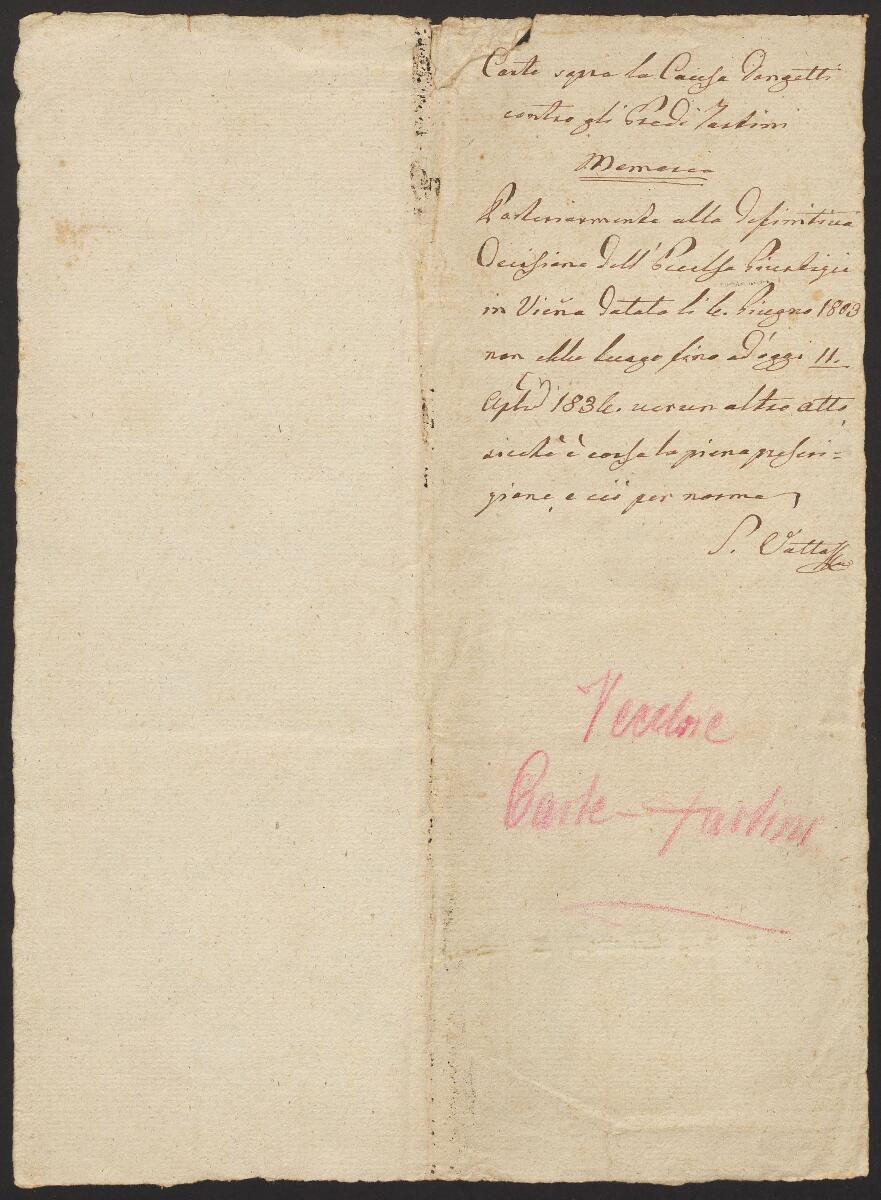 Carte sopra la Causa Dongetti
contro gli Eredi Tartini
Memoria
Posteriormente alla definitiva
Decisione dell'Eccelso
in Viena datata li 6. Giugno 1803
non ebbe luogo fino ad oggi 11.
1836. verun altro atto
sicchè è corsa la piena prescri=
zione, e ciò per norma
Vecchie
Carte - Tartini